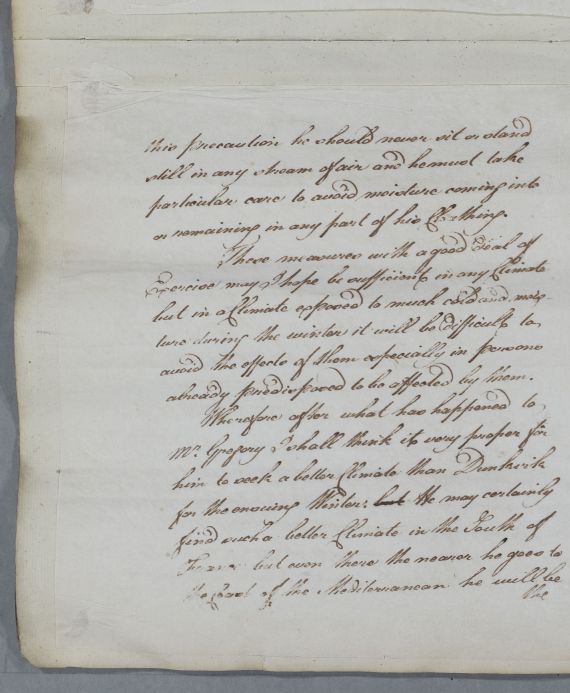 this precaution he should never sit or stand
still in any stream of air and he must take
particular care to avoid moisture coming into
or remaining in any part of his Cloathing.
These measures with a good deal of
Exercise may I hope be sufficient in any Climate
but in a Climate exposed to much cold and mois-
ture during the winter it will be difficult to
avoid the effects of them especially in persons
already predisposed to be affected by them.
Wherefore after what has happened to
Mr. Gregory I shall think it very proper for
him to seek a better Climate than Dunkirk
for the ensuing Winter; but He may certainly
find such a better Climate in the South of
France but even there the nearer he goes to
the Coast of the Mediterranean he will be
the